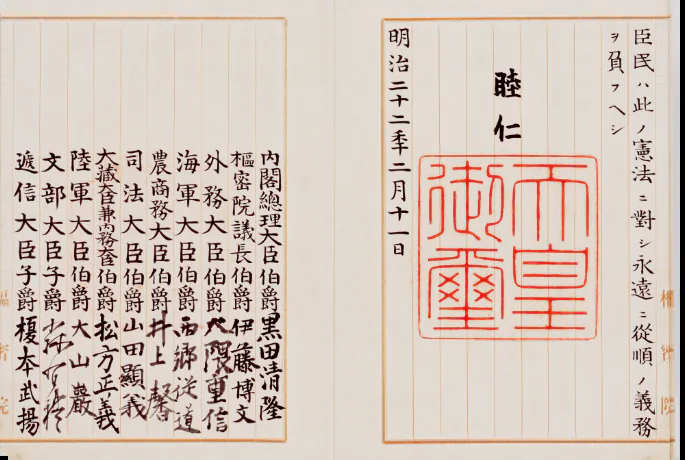 臣民ハ此ノ憲法ニ對シ永遠ニ從順ノ義務
ヲ負フヘシ
睦仁
天皇
御璽
明治二十二年二月十一日
內閣總理大臣伯爵黒田清隆
樞密院議長伯爵伊藤博文
外務大臣伯爵大隈重信
海軍大臣伯爵西郷従道
農商務大臣伯爵井上馨
司法大臣伯爵山田顯義
大藏大臣兼內務大臣伯爵松方正義
陸軍大臣伯爵大山巌
文部大臣子爵
遞信大臣子爵榎本武揚
樞密院